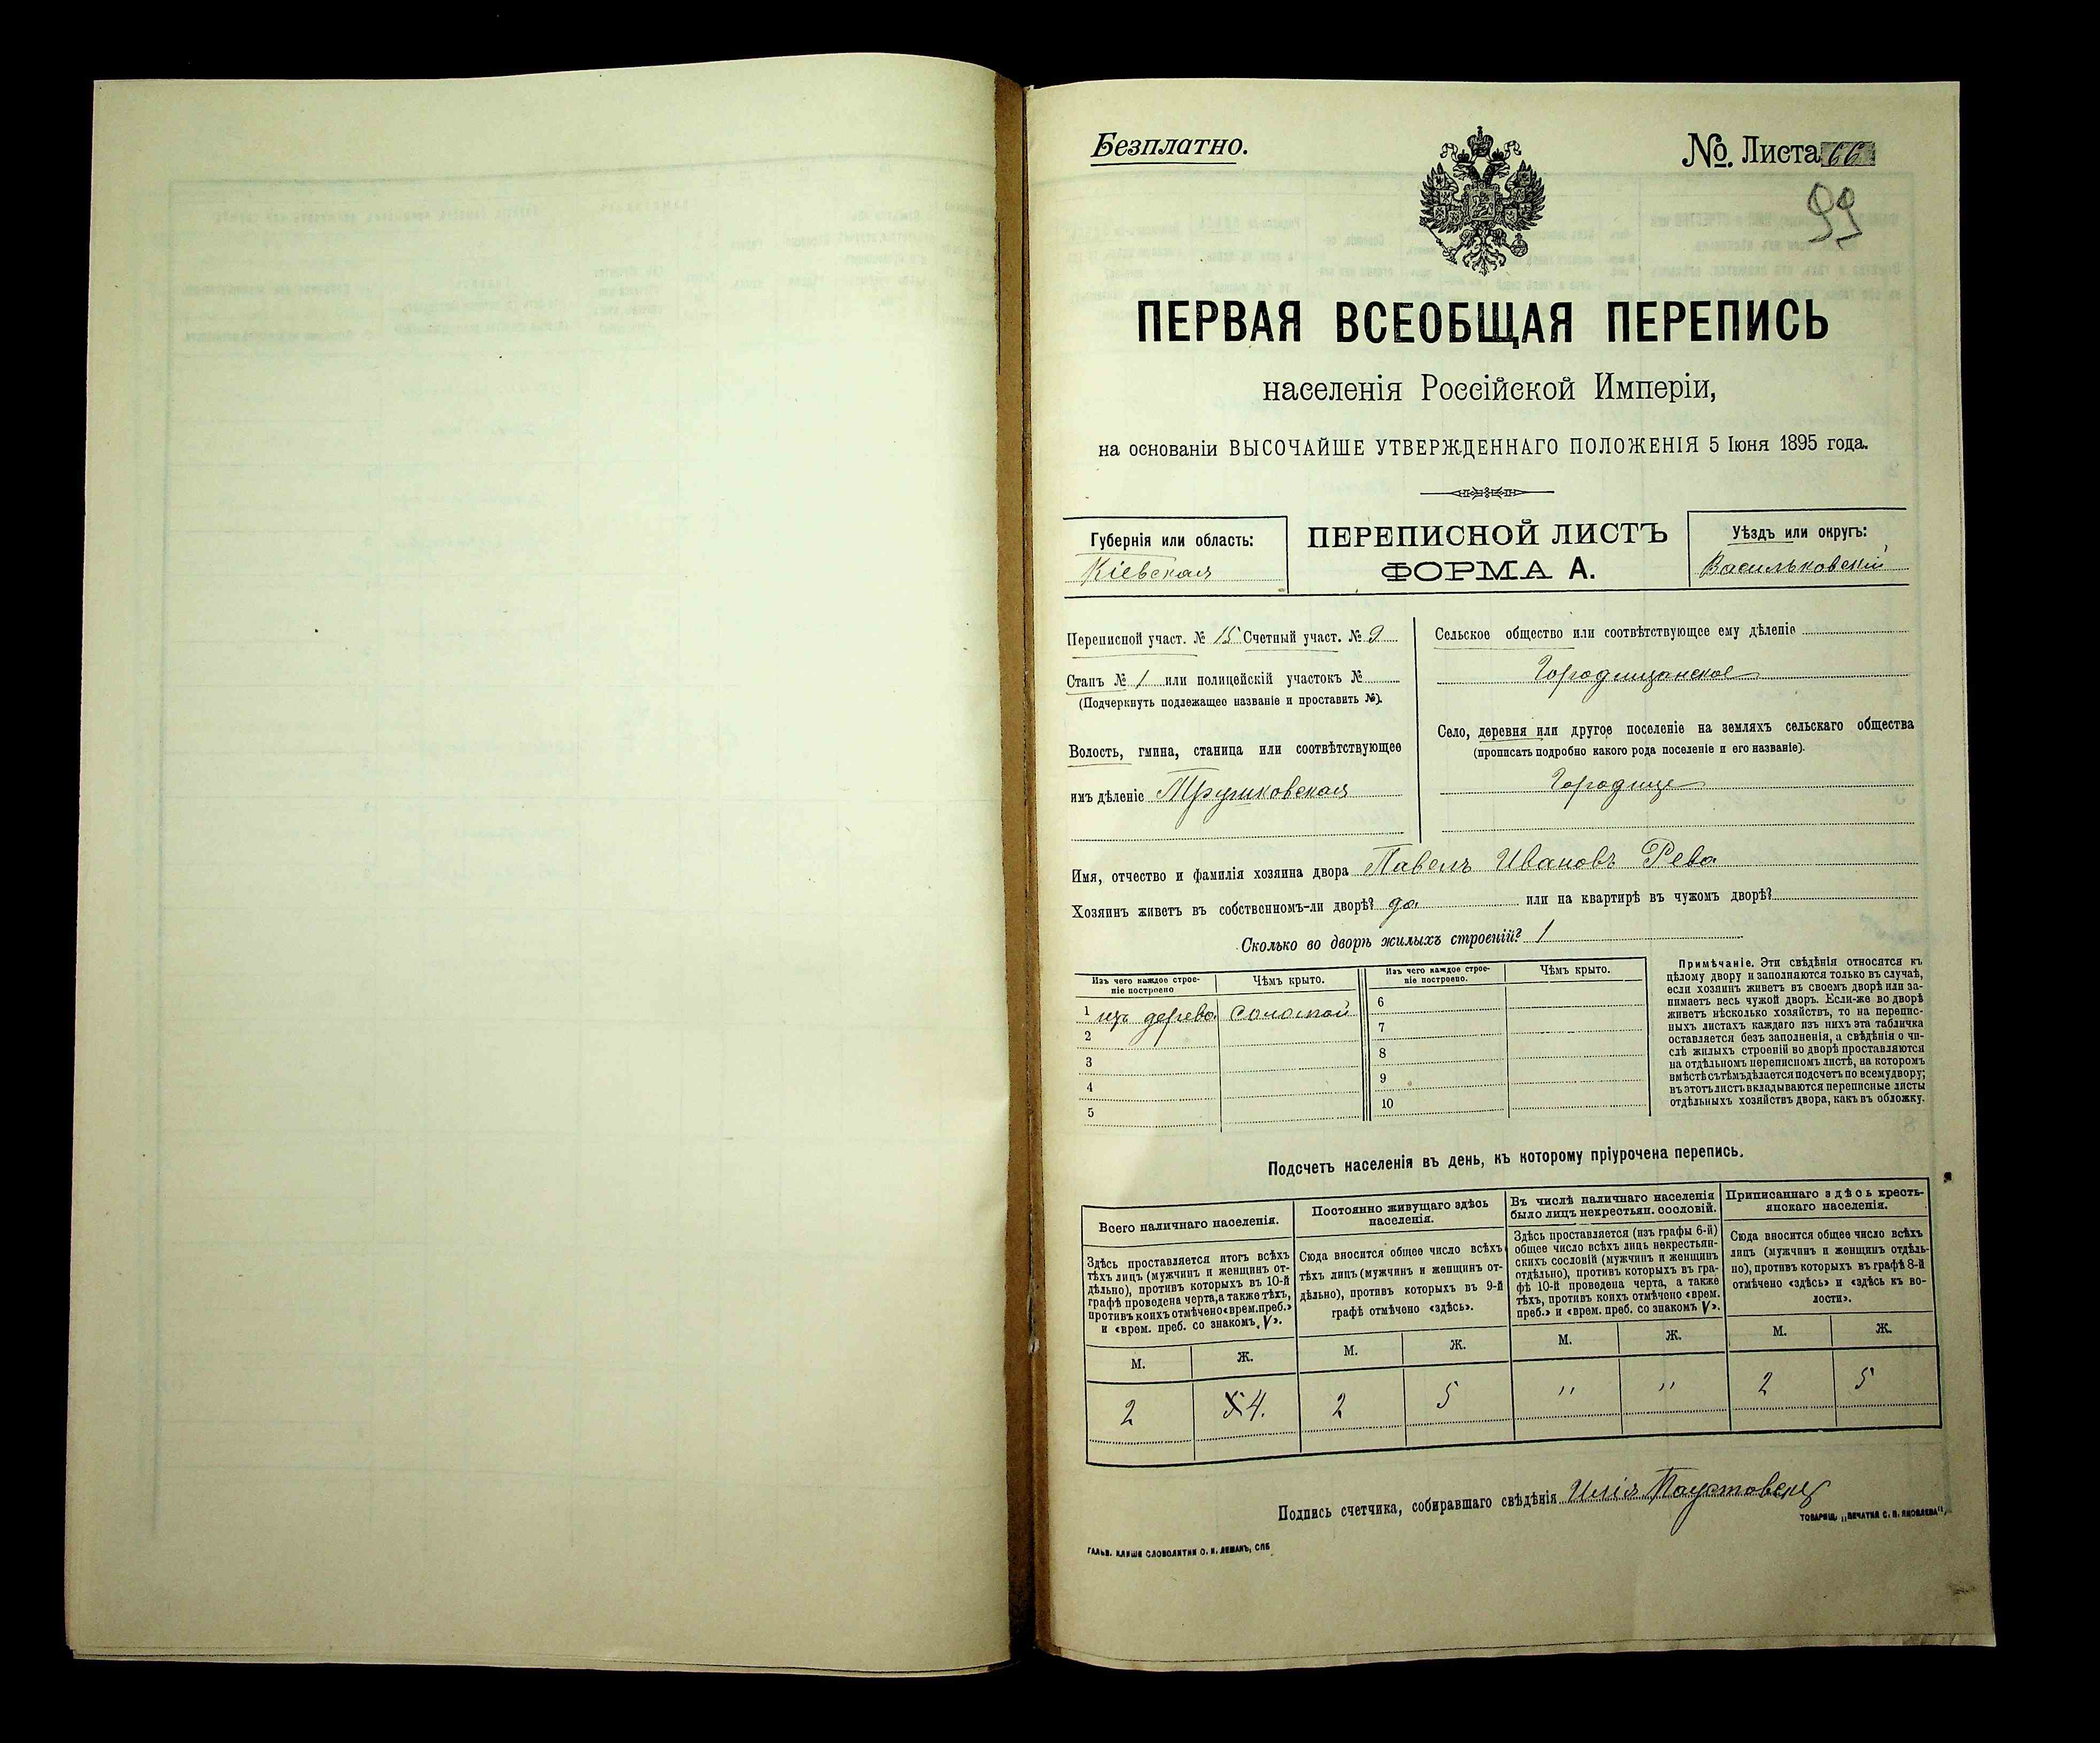 Безплатно.
№. Листа 66
99
ПЕРВАЯ ВСЕОБЩАЯ ПЕРЕПИСЬ
населенія Россійской Имперіи,
на основаніи ВЫСОЧАЙШЕ УТВЕРЖДЕННАГО ПОЛОЖЕНІЯ 5 Іюня 1895 года.
Губернія или область:
Кіевская
ПЕРЕПИСНОЙ ЛИСТЪ
ФОРМА А.
Уѣздъ или округъ:
Васильковскій
Переписной участ. № 15 Счетный участ. № 9
Станъ № 1 или полицейскій участокъ №
(Подчеркнуть подлежащее названіе и проставить №).
Волость, гмина, станица или соотвѣтствующее
имъ дѣленіе Трушковская
Сельское общество или соотвѣтствующее ему дѣленіе
Городищанское
Село, деревня или другое поселеніе на земляхъ сельскаго общества
(прописать подробно какого рода поселеніе и его названіе).
Городище
Имя, отчество и фамилія хозяина двора Павелъ Ивановъ Рева
Хозяинъ живетъ въ собственномъ-ли дворѣ? да или на квартирѣ въ чужомъ дворѣ?
Сколько во дворѣ жилыхъ строеній? 1
Изъ чего каждое строе-
ніе построено
Чѣмъ крыто.
Изъ чего каждое строе-
ніе построено.
Чѣмъ крыто.
1 изъ дерева соломой
2
3
4
5
6
7
8
9
10
Примѣчаніе. Эти свѣдѣнія относятся къ
цѣлому двору и заполняются только въ случаѣ,
если хозяинъ живетъ въ своемъ дворѣ или за-
нимаетъ весь чужой дворъ. Если-же во дворѣ
живетъ нѣсколько хозяйствъ, то на перепис-
ныхъ листахъ каждаго изъ нихъ эта табличка
оставляется безъ заполненія, а свѣдѣнія о чи-
слѣ жилыхъ строеній во дворѣ проставляются
на отдѣльномъ переписномъ листѣ, на которомъ
вмѣстѣ съ тѣмъ дѣлается подсчетъ по всему двору;
въ этотъ листъ вкладываются переписные листы
отдѣльныхъ хозяйствъ двора, какъ въ обложку.
Подсчетъ населенія въ день, къ которому пріурочена перепись.
Всего наличнаго населенія.
Здѣсь проставляется итогъ всѣхъ
тѣхъ лицъ (мужчинъ и женщинъ от-
дѣльно), противъ которыхъ въ 10-й
графѣ проведена черта, а также тѣхъ,
противъ коихъ отмѣчено «врем. преб.»
и «врем. преб. со знакомъ V».
Постоянно живущаго здѣсь
населенія.
Сюда вносится общее число всѣхъ
тѣхъ лицъ (мужчинъ и женщинъ от-
дѣльно), противъ которыхъ въ 9-й
графѣ отмѣчено «здѣсь».
Въ числѣ наличнаго населенія
было лицъ некрестьян. сословій.
Здѣсь проставляется (изъ графы 6-й)
общее число всѣхъ лицъ некрестьян-
скихъ сословій (мужчинъ и женщинъ
отдѣльно), противъ которыхъ въ гра-
фѣ 10-й проведена черта, а также
тѣхъ, противъ коихъ отмѣчено «врем.
преб.» и «врем. преб. со знакомъ V».
Приписаннаго здѣсь кресть-
янскаго населенія.
Сюда вносится общее число всѣхъ
лицъ (мужчинъ и женщинъ отдѣль-
но), противъ которыхъ въ графѣ 8-й
отмѣчено «здѣсь» и «здѣсь къ во-
лости».
М. Ж. М. Ж. М. Ж. М. Ж.
2 5 4. 2 5 " " 2 5
Подпись счетчика, собиравшаго свѣдѣнія Илія Паустовскій
ТОВАРИЩ. „ПЕЧАТНЯ С. П. ЯКОВЛЕВА".
ГАЛЬВ. КЛИШЕ СЛОВОЛИТНИ О. И. ЛЕМАНЪ, СПБ